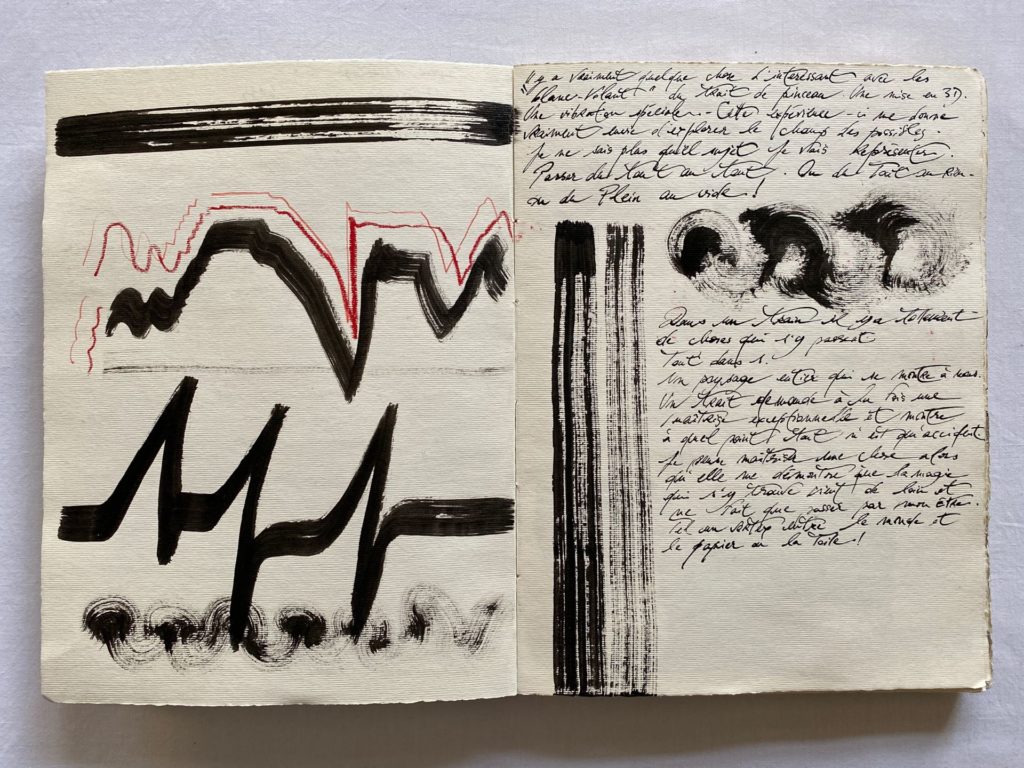 Il y a vraiment quelque chose d'intéressant avec les
"blanc-volant" du trait de pinceau. Une mise en 3D.
Une vibration spéciale. Cette expérience - ci me donne
vraiment envie d'explorer le champ des possibles.
Je ne sais plus quel sujet je vais représenter.
Passer du tout au tout. Ou de Tout au Rien.
ou du Plein au vide !
Dans un trait il y a tellement
de choses qui s'y passent
Tout dans 1.
Un paysage entier qui se montre à nous.
Un trait demande à la fois une
maîtrise exceptionnelle et montre
à quel point tout n'est qu'accident
Je pense maîtriser une chose alors
qu'elle me démontre que la magie
qui s'y trouve vient de loin et
ne fait que passer par mon Être.
Tel un entre le monde et
le papier ou la Toile !